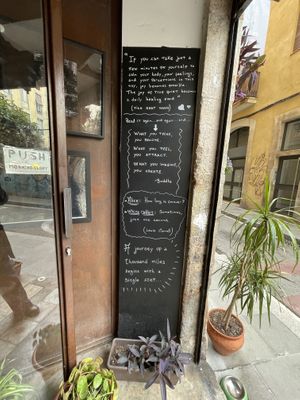 "If you can take just a
few minutes to yourself to
calm your body, your feelings,
and your perceptions in this
way, joy becomes possible.
The joy of true quiet becomes
a daily healing food."
(Thich Nhat Hanh)
Read it again, and again, and...
What you think,
you become.
What you feel,
you attract.
What you imagine,
you create.
-Buddha
Alice: How long is forever?
White rabbit: Sometimes,
just one second.
(Lewis Carroll)
A journey of a
thousand miles
begins with a
single step.
PUSH